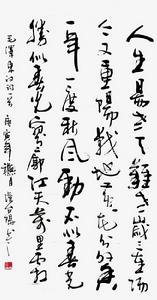 人生易老天難老歲歲重陽
今又重陽戰地黃花分外香
一年一度秋風勁不似春光
勝似春光寥廓江天萬里霜
毛澤東詞一首 庚寅年